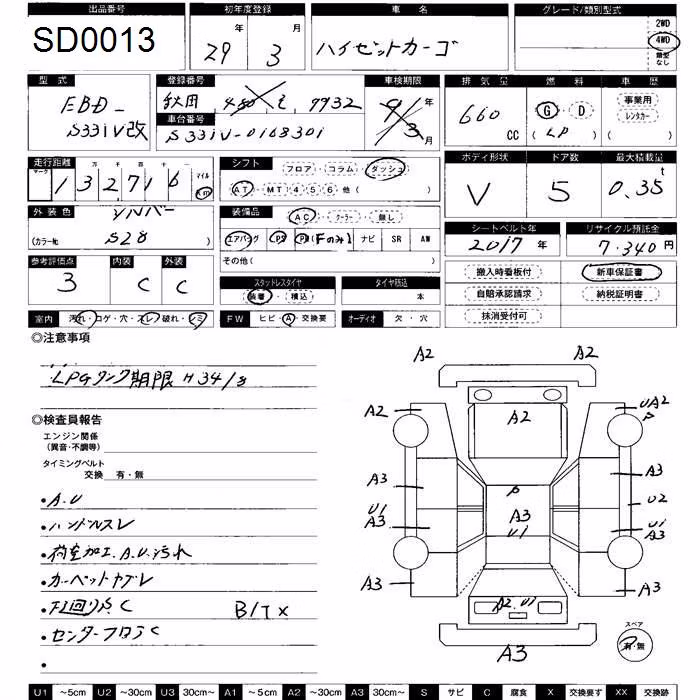 出品番号 初年度登録 車名 グレード/類別型式
SD0013 29年 3月 ハイゼットカーゴ 2WD 4WD 類型なし
型式 登録番号 車検期限 排気量 燃料 車歴
EBD-S331V改 秋田 480 t 9932 9/3 年 月 660 CC G・D (LP) 事業用 レンタカー ( )
車台番号
S331V-0168301
走行距離 シフト フロア・コラム・ダッシュ ボディ形状 ドア数 最大積載量
マーク 十万 千 百 十 一 マイル
132,716 Km AT・MT(4 5 6 他( ) V 5 0.35 t
外装色 シルバー 装備品 AC・クーラー・無し シートベルト年 リサイクル預託金
(カラー№ S28 ) エアバッグ PS PW(Fのみ) ナビ SR AW 2017年 7.340円
その他( )
参考評価点 内装 外装 スタッドレスタイヤ タイヤ積込 搬入時看板付 新車保証書
3 C C 装着・積込 本 自賠承認請求 納税証明書
抹消受付可
室内 汚れ・コゲ・穴・スレ・破れ・ミ FW ヒビ・A・交換要 オーディオ 欠・穴
◎注意事項
LPGタンク期限 H34/3
◎検査員報告
エンジン関係
(異音・不調等)
タイミングベルト
交換 有・無
・A.U
・ハンドルスレ
・荷室加工.A.U.汚れ
・カーペットヤブレ
・下回りSC B/Tx
・センターフロアC
・
A2 A2
A2 A2 UA2
P
A3 P A3
U1 A3 U2
A3 U1 U1
A3
A3 A2.U1 A3
A3
スペア
有・無
U1 ～5cm U2 ～30cm U3 30cm～ A1 ～5cm A2 ～30cm A3 30cm～ S サビ C 腐食 X 交換要す XX 交換跡